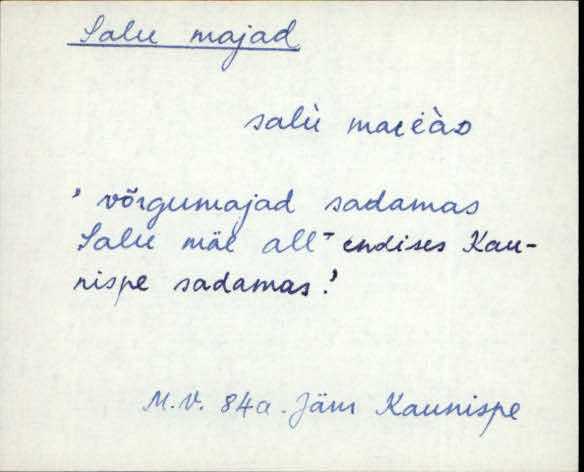 Salu majad
salù
' võrgumajad sadamas
Salu mäe all - endises Kau-
nispe sadamas.'
M.V. 84a. Jäm Kaunispe